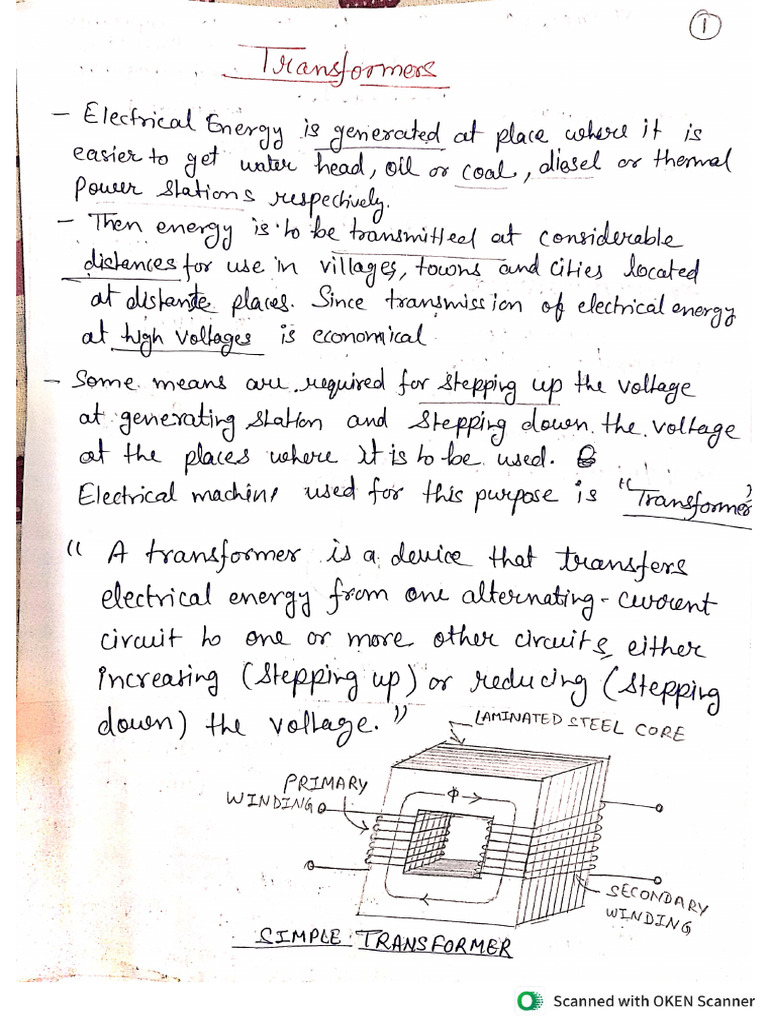 1
Transformers
- Electrical Energy is generated at place where it is
easier to get water head, oil or coal, diesel or thermal
Power Stations respectively.
- Then energy is to be transmitted at considerable
distances for use in villages, towns and cities located
at distante places. Since transmission of electrical energy
at high voltages is economical.
- Some means are required for stepping up the voltage
at generating station and stepping down the voltage
at the places where it is to be used.
Electrical machine used for this purpose is "Transformer"
" A transformer is a device that transfers
electrical energy from one alternating-current
circuit to one or more other circuits, either
increasing (stepping up) or reducing (stepping
down) the voltage."
LAMINATED STEEL CORE
PRIMARY
WINDING
ϕ
SECONDARY
WINDING
SIMPLE TRANSFORMER
Scanned with OKEN Scanner